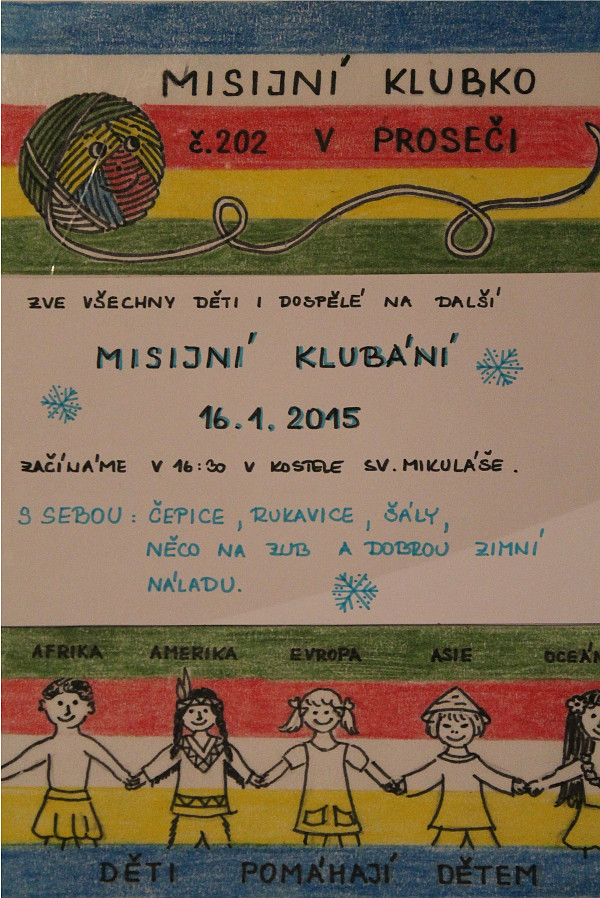 MISIJNÍ KLUBKO
č.202 V PROSEČI
ZVE VŠECHNY DĚTI I DOSPĚLÉ NA DALŠÍ
MISIJNÍ KLUBÁNÍ
16.1.2015
ZAČÍNÁME V 16:30 V KOSTELE SV. MIKULÁŠE.
S SEBOU: ČEPICE, RUKAVICE, ŠÁLY,
NĚCO NA ZUB A DOBROU ZIMNÍ
NÁLADU.
AFRIKA AMERIKA EVROPA ASIE OCEÁN
DĚTI POMÁHAJÍ DĚTEM